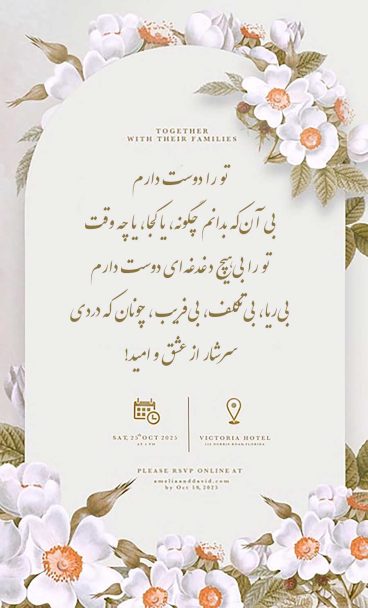 TOGETHER
WITH THEIR FAMILIES
تو را دوست دارم
بی آن‌که بدانم چگونه، یا کجا، یا چه وقت
تو را بی‌هیچ دغدغه‌ای دوست دارم
بی‌ریا، بی‌تکلف، بی‌فریب، چونان که دردی
سرشار از عشق و امید!
SAT, 25th OCT 2025
AT 5 PM
VICTORIA HOTEL
PLEASE RSVP ONLINE AT
ameliaanddavid.com
by Oct 18, 2025